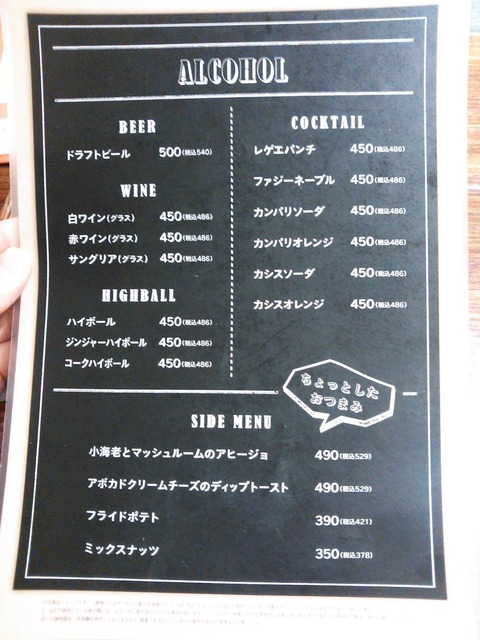 ALCOHOL
BEER
ドラフトビール 500(税込540)
WINE
白ワイン(グラス) 450(税込486)
赤ワイン(グラス) 450(税込486)
サングリア(グラス) 450(税込486)
HIGHBALL
ハイボール 450(税込486)
ジンジャーハイボール 450(税込486)
コークハイボール 450(税込486)
COCKTAIL
レゲエパンチ 450(税込486)
ファジーネーブル 450(税込486)
カンパリソーダ 450(税込486)
カンパリオレンジ 450(税込486)
カシスソーダ 450(税込486)
カシスオレンジ 450(税込486)
ちょっとした
おつまみ
SIDE MENU
小海老とマッシュルームのアヒージョ 490(税込529)
アボカドクリームチーズのディップトースト 490(税込529)
フライドポテト 390(税込421)
ミックスナッツ 350(税込378)